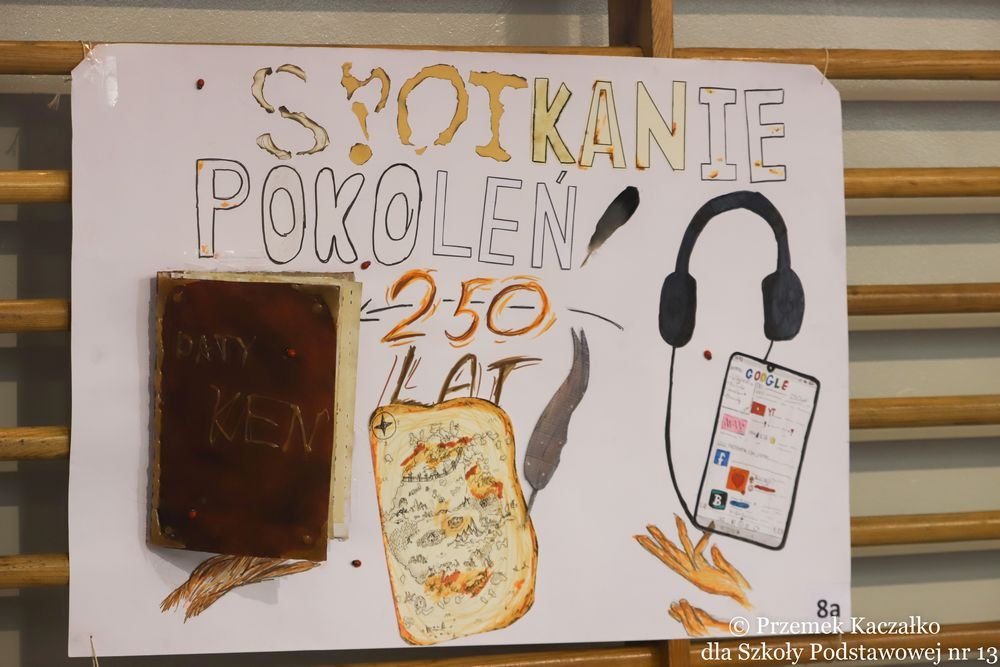 SPOTKANIE
POKOLEŃ
250
LAT
DATY
KEN
GOOGLE
YT
8a
© Przemek Kaczałko
dla Szkoły Podstawowej nr 13